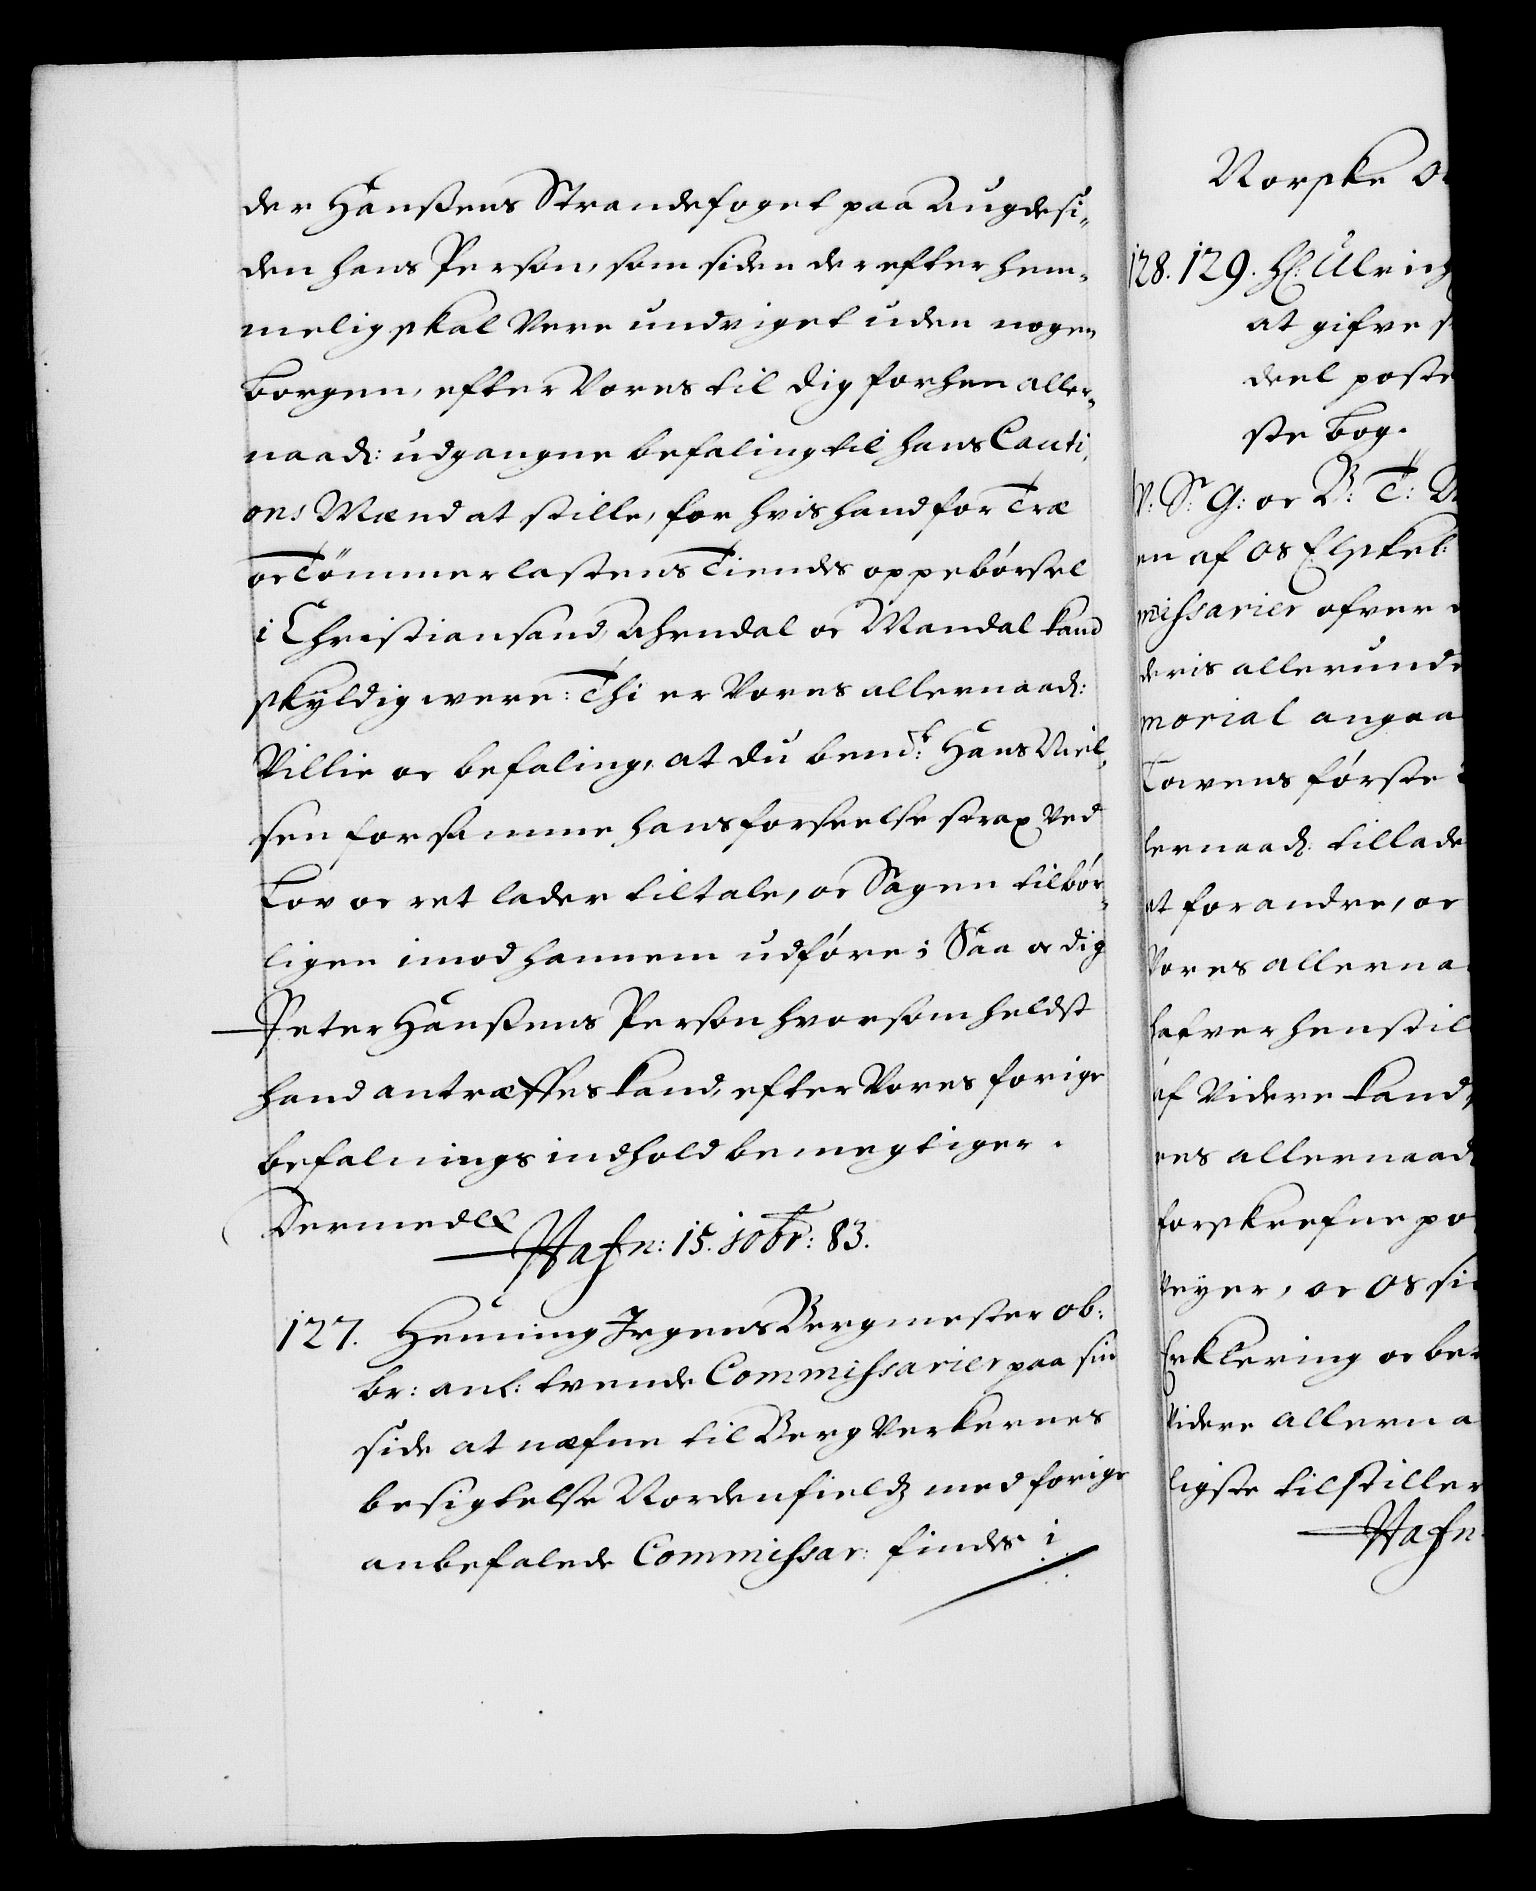 der Hanßens Strandefoget paa Augdesi,,
den hans Person, som siden der efter hem,,
melig skal være undviget uden nogen
borgen, efter Vores til dig forhen aller,,
naad: udgangne befaling til hans Cauti,
ons Mænd at stille, for hvis hand for Træ
oc Tömmerlastens Tiendes oppebørsel
i Christiansand, Ahrendal oc Mandal kand
skyldig were: Thi er Vores allernaad:
Villie oc befaling, at du bemᵗ: Hans Niel,
sen for samme hans forseelse strax Ved
Lov oc ret lader tiltale, oc Sagen tilbör,,
ligen imod hannem udføre; Saa oc dig
Peter Hanßens Person hvorsom heldst
hand antræffes kand, efter Vores forige
befalnings indhold bemegtiger.
Dermed &
Hafn: 15. 10br: 83.
127. Henning Irgens Bergmester ob:
br: anl: tvende Commissarier paa sin
side at næfne til Berg Verkernes
besigtelse Nordenfields med forige
anbefalede Commissar: findes i
Norske
128. 129. Hr: Ulrich
at gifve
deel poste
ste bog.
V: S: G: oc B: T:
en af os Elskel:
missarier ofver
deris allerunde
morial angaa
Lovens første
lernaad: tillade
at forandre, oc
Vores allerna
hafver henstil
af Videre kand
res allernaad
forskrefne po
veyer, oc os si
Erklering oc be
videre allerna
ligste tilstiller
Hafn: